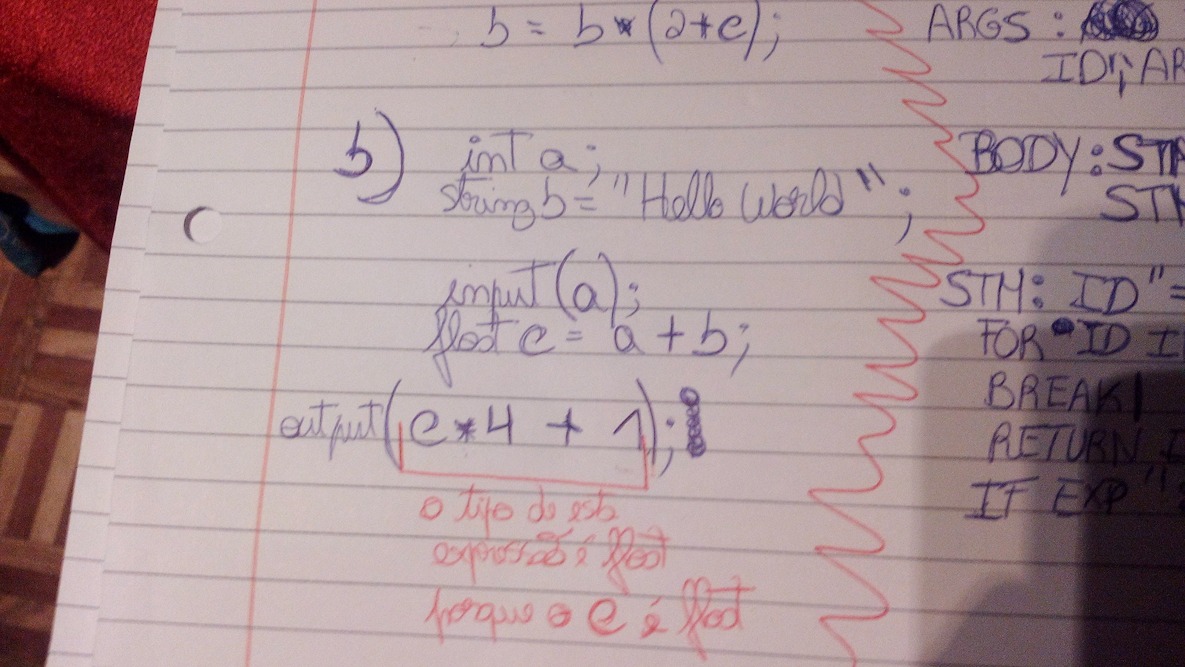 b = b * (2+c);
b) int a;
string b = "Hello World";
input(a);
float c = a + b;
output(c*4 + 1);
o tipo de esta
expressão é float
porque o c é float
ARGS :
ID","AR
BODY: STM
STM
STM: ID "=
FOR ID I
BREAK |
RETURN
IF EXP ":